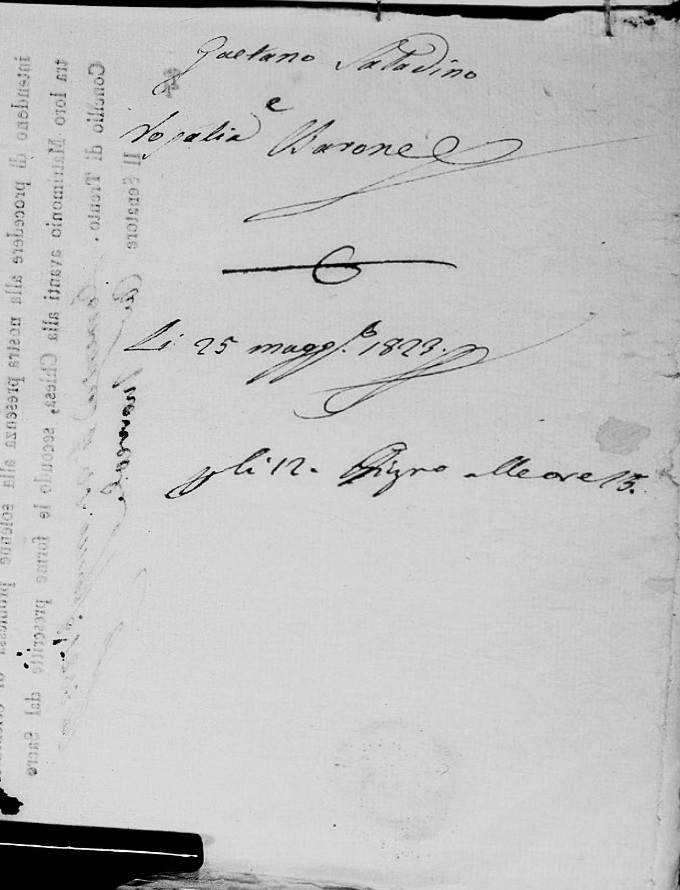 Gaetano Saladino
e
Rosalia Barone
Li 25 magg.º 1823.
li 12. Giugno alle ore 15.
Il Senatore
Concilio di Trento.
tra loro Matrimonio avanti alla Chiesa, secondo le forme prescritte dal Sacro
intendono di procedere alla nostra presenza alla solenne promessa di